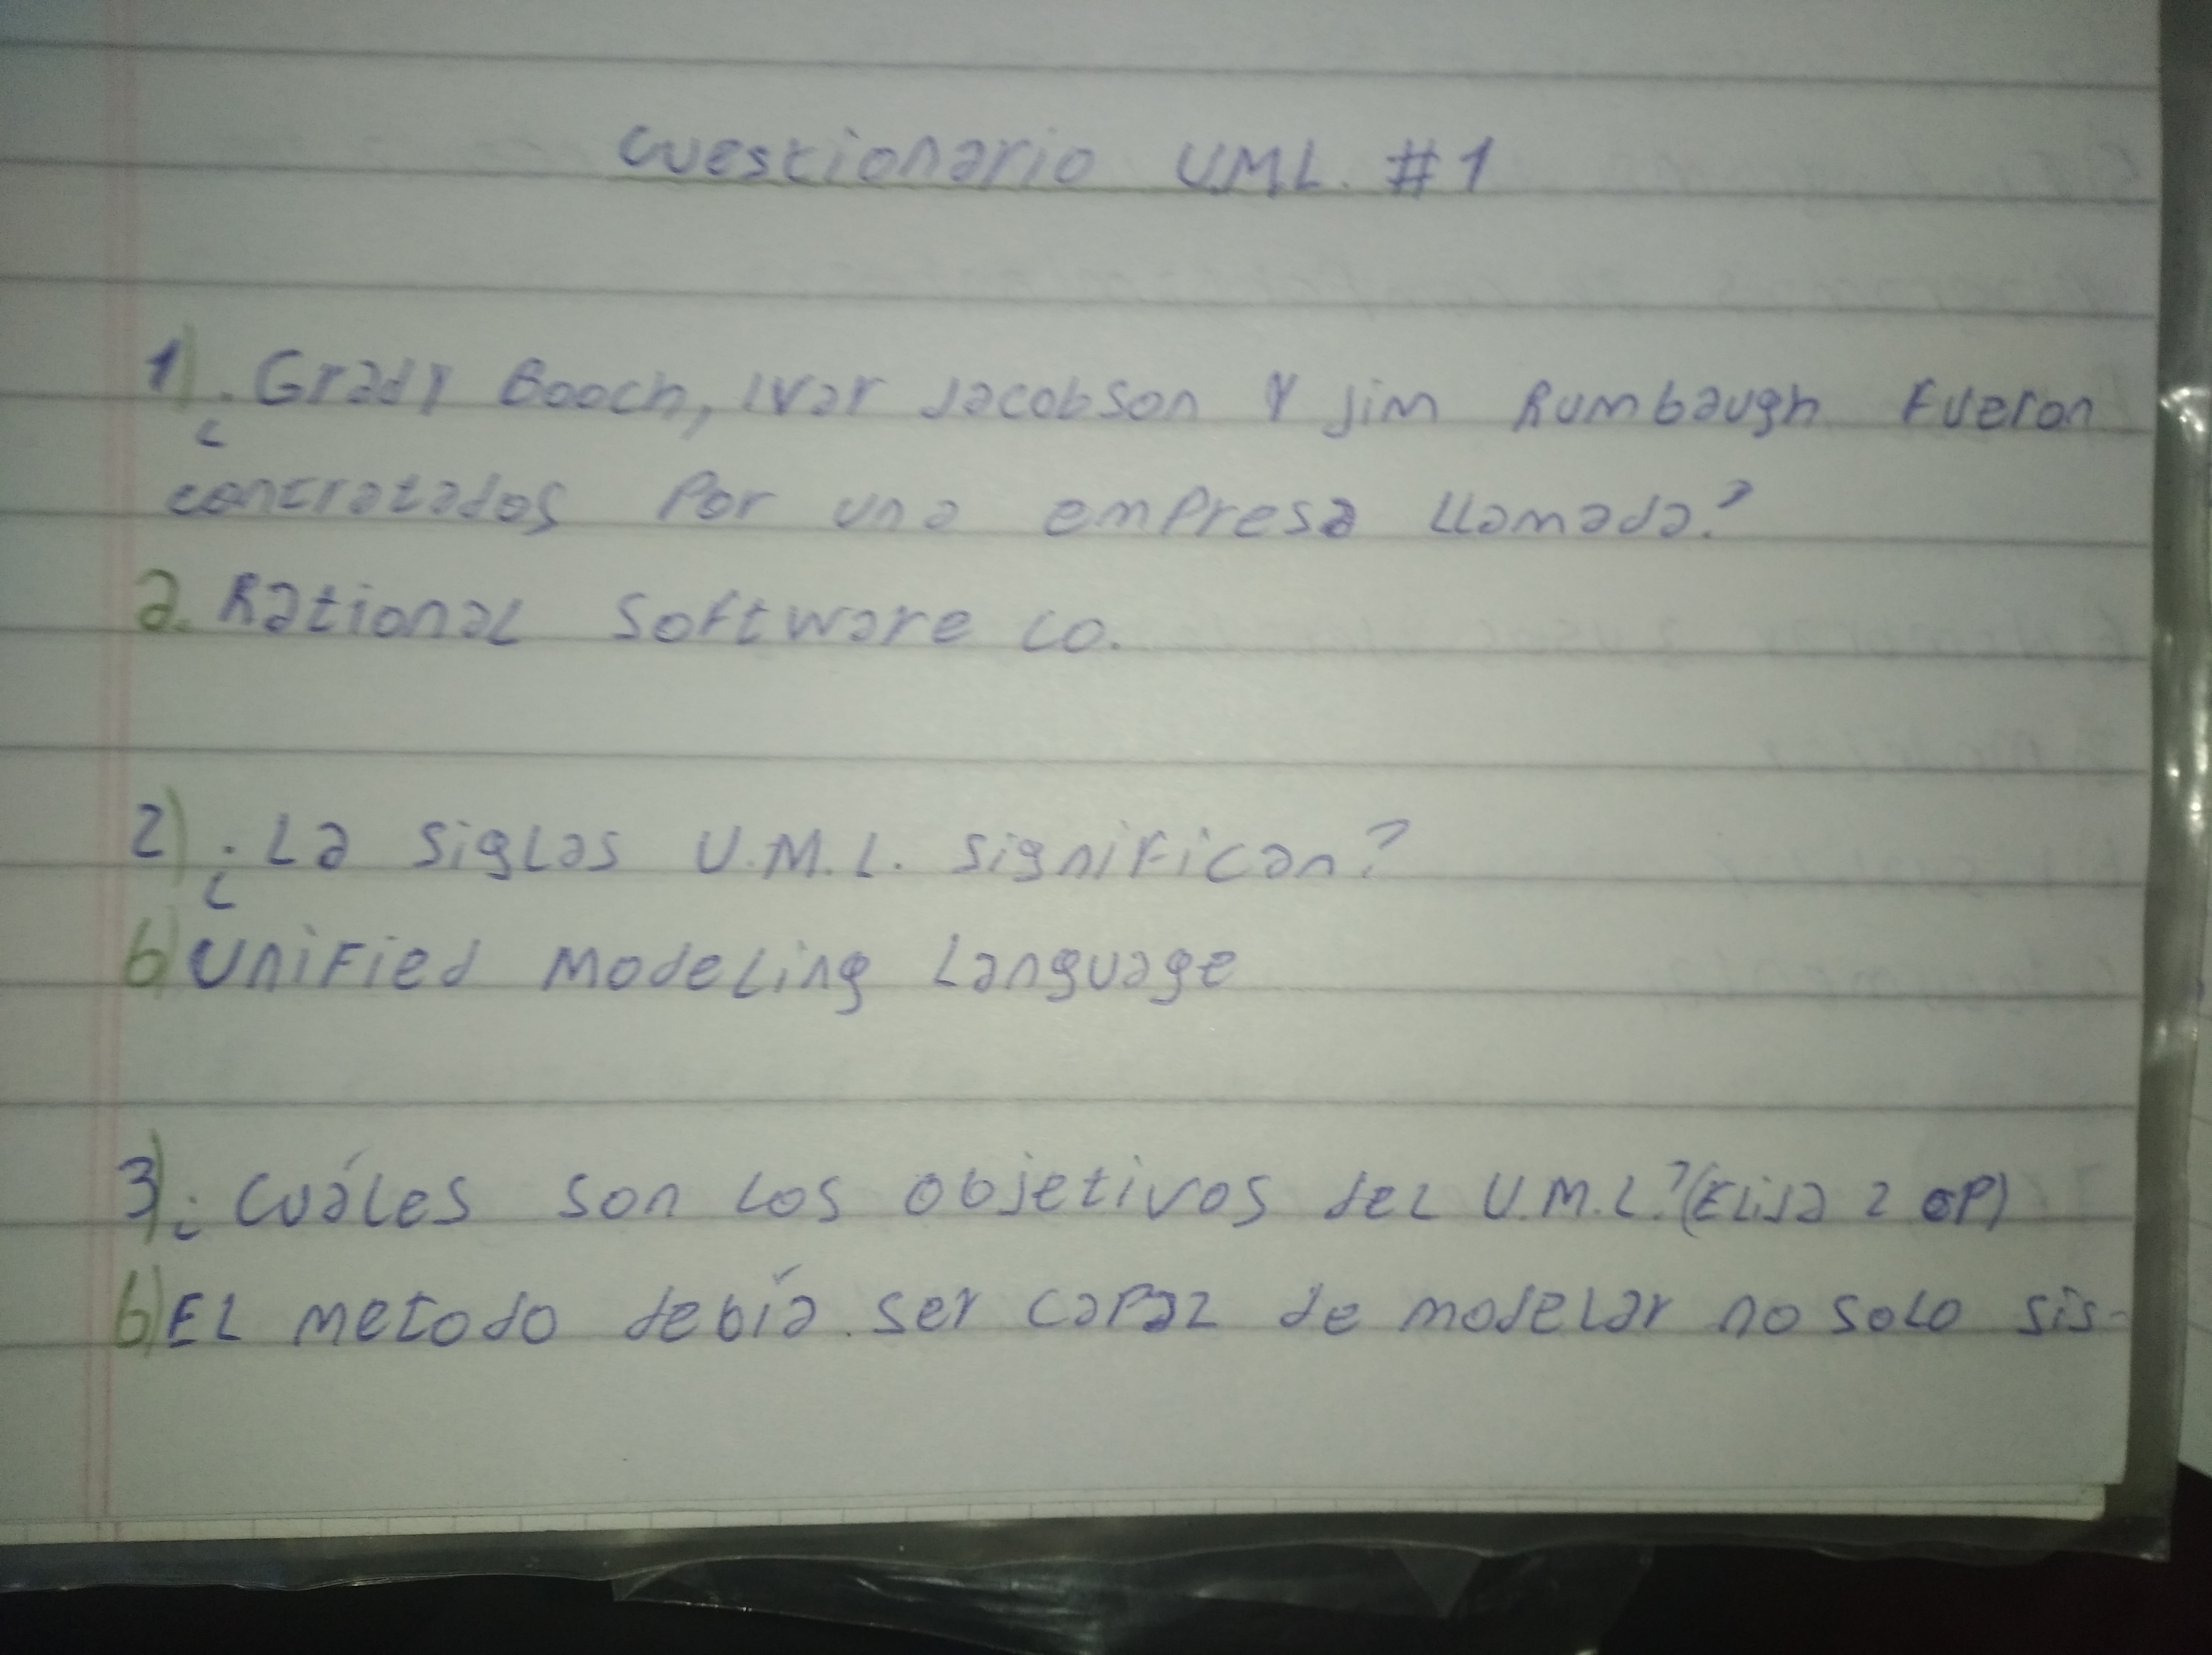 Cuestionario UML. #1
1) ¿Grady Booch, Ivar Jacobson y Jim Rumbaugh Fueron
contratados Por una empresa llamada?
a. Rational Software co.
2) ¿La siglas U.M.L. significan?
b) Unified Modeling Language
3) ¿Cuáles son los objetivos del U.M.L.? (Elija 2 op)
b) El metodo debía ser capaz de modelar no solo sis-